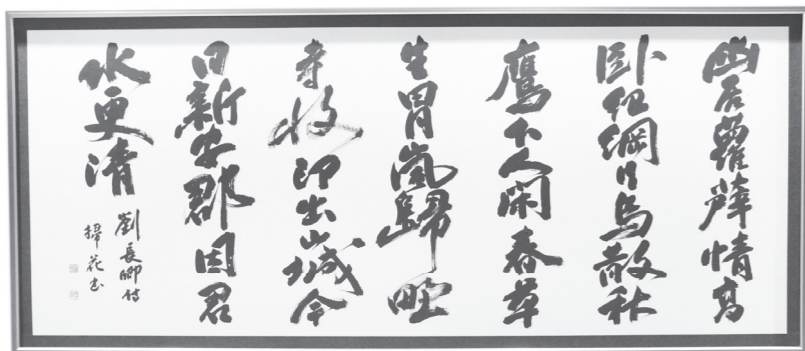 幽居蘿薜情高
卧紀綱行鳥散秋
鷹下人閑春草
生冒嵐歸野
寺收印出山城今
日新安郡因君
水更清
劉長卿詩
掃花書